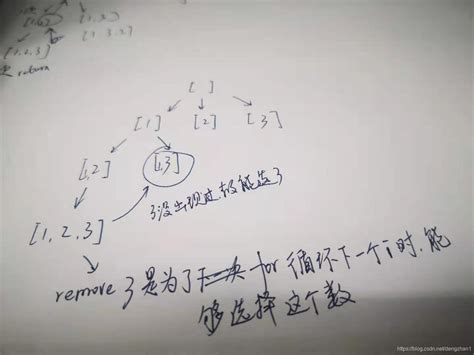 [1,3]
[1,2,3]
[1,3,2]
return
[ ]
[1] [2] [3]
[1,2] [1,3]
3没出现过,故能选3
[1,2,3]
remove 3是为了下一次 for循环下一个i时,能
够选择这个数
https://blog.csdn.net/dengzhan1